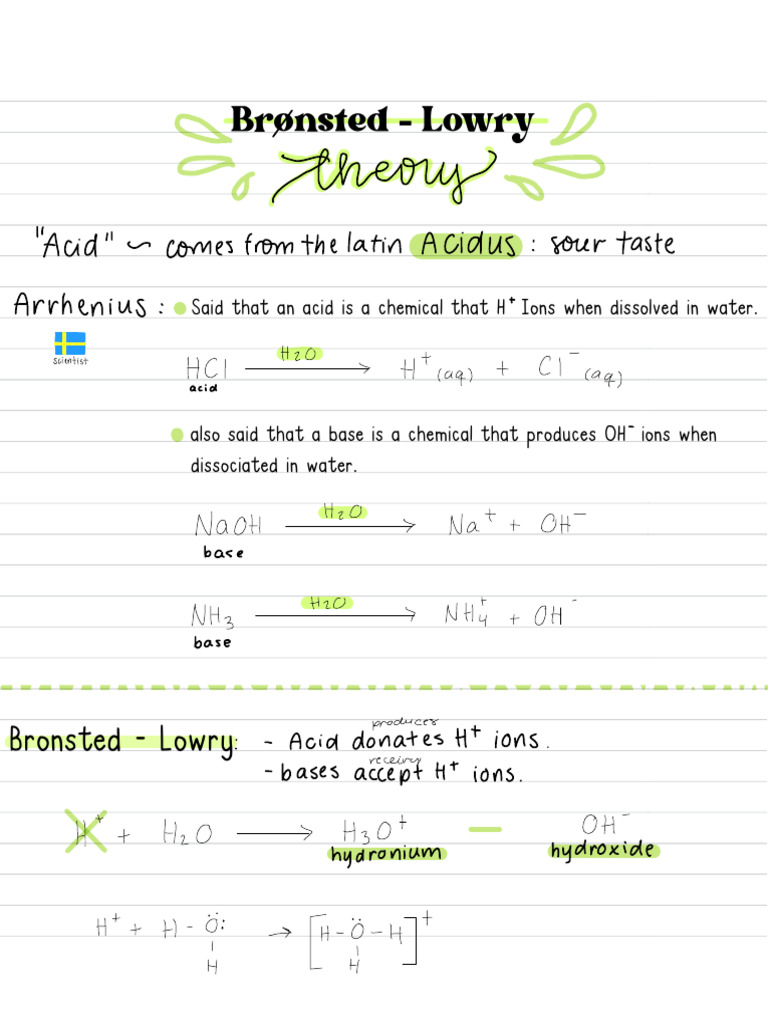 Brønsted - Lowry
theory
"Acid" ~ comes from the latin Acidus : sour taste
Arrhenius : Said that an acid is a chemical that H⁺ Ions when dissolved in water.
scientist
H2O
HCl → H⁺(aq) + Cl⁻(aq)
acid
also said that a base is a chemical that produces OH⁻ ions when
dissociated in water.
H2O
NaOH → Na⁺ + OH⁻
base
H2O
NH₃ → NH₄⁺ + OH⁻
base
produces
Bronsted - Lowry: - Acid donates H⁺ ions.
receiving
- bases accept H⁺ ions.
H⁺ + H₂O → H₃O⁺ — OH⁻
hydronium hydroxide
H⁺ + H - Ö: → [H - Ö - H]⁺
H H